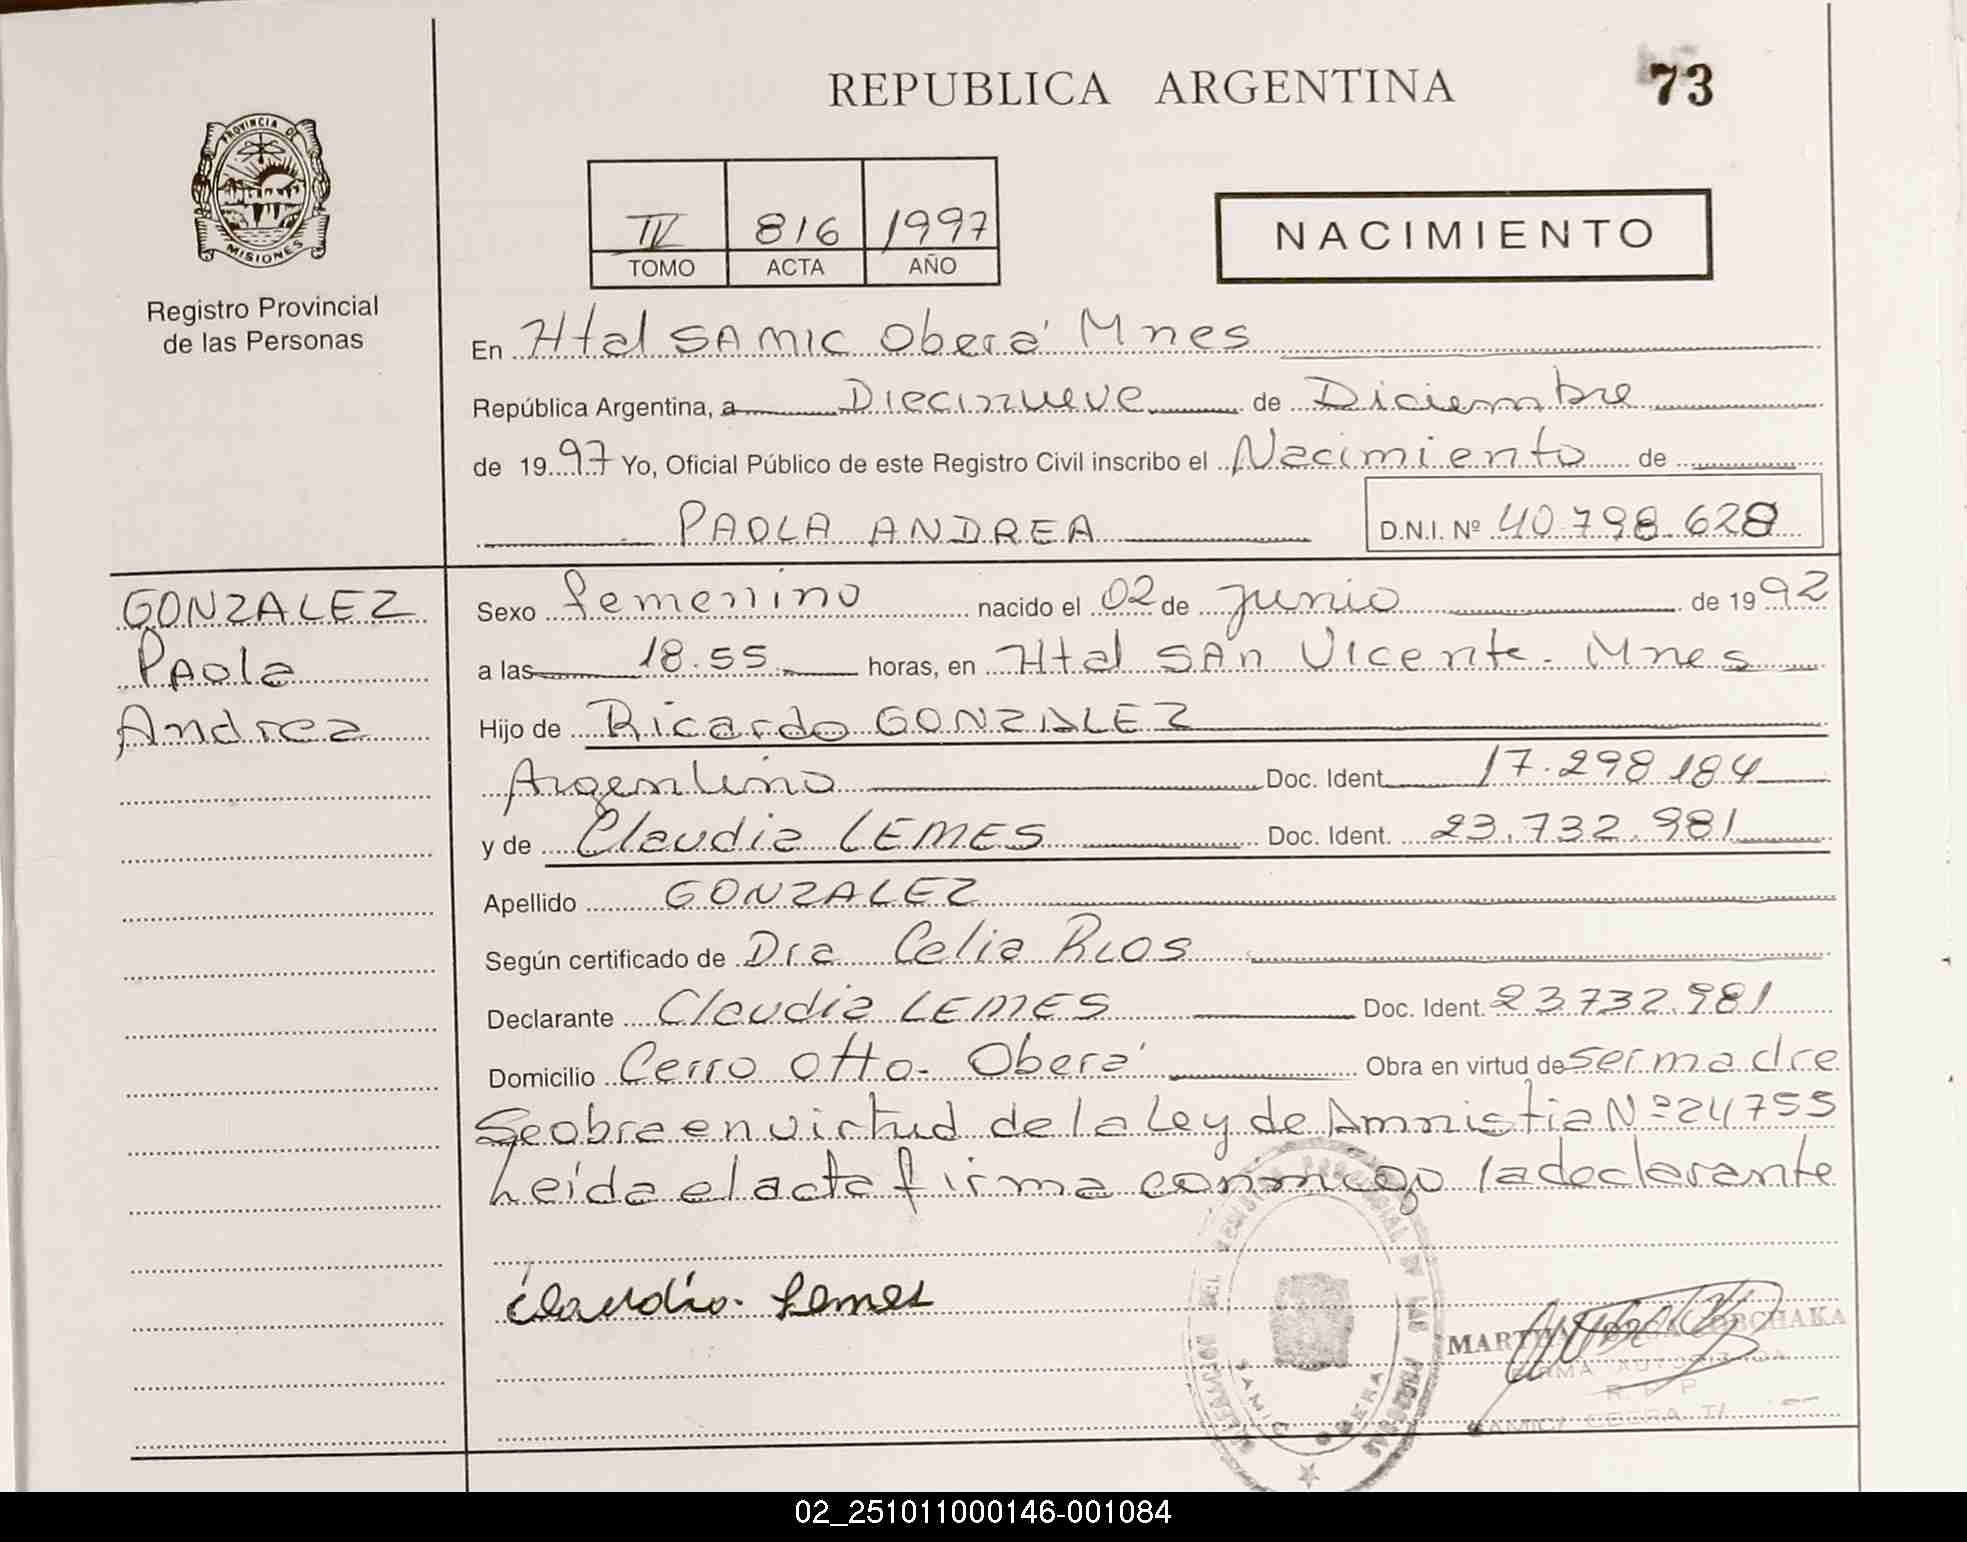 REPUBLICA ARGENTINA
73
PROVINCIA DE
MISIONES
Registro Provincial
de las Personas
IV 816 1997
TOMO ACTA AÑO
NACIMIENTO
En Htal SAMIC Oberá Mnes
República Argentina, a Diecinueve de Diciembre
de 1997 Yo, Oficial Público de este Registro Civil inscribo el Nacimiento de
PAOLA ANDREA D.N.I. Nº 40.798.628
GONZALEZ
Paola
Andrea
Sexo femenino nacido el 02 de Junio de 1992
a las 18.55 horas, en Htal SAn Vicente. Mnes
Hijo de Ricardo GONZALEZ
Argentino Doc. Ident. 17.298.184
y de Claudia LEMES Doc. Ident. 23.732.981
Apellido GONZALEZ
Según certificado de Dra Celia RIOS
Declarante Claudia LEMES Doc. Ident. 23.732.981
Domicilio Cerro Otto. Oberá Obra en virtud de ser madre
Se obra en virtud de la Ley de Amnistia Nº 24755
Leída el acta firma conmigo la declarante
Claudia Lemes
REGISTRO PROVINCIAL DE LAS PERSONAS
MARTHA
02_251011000146-001084